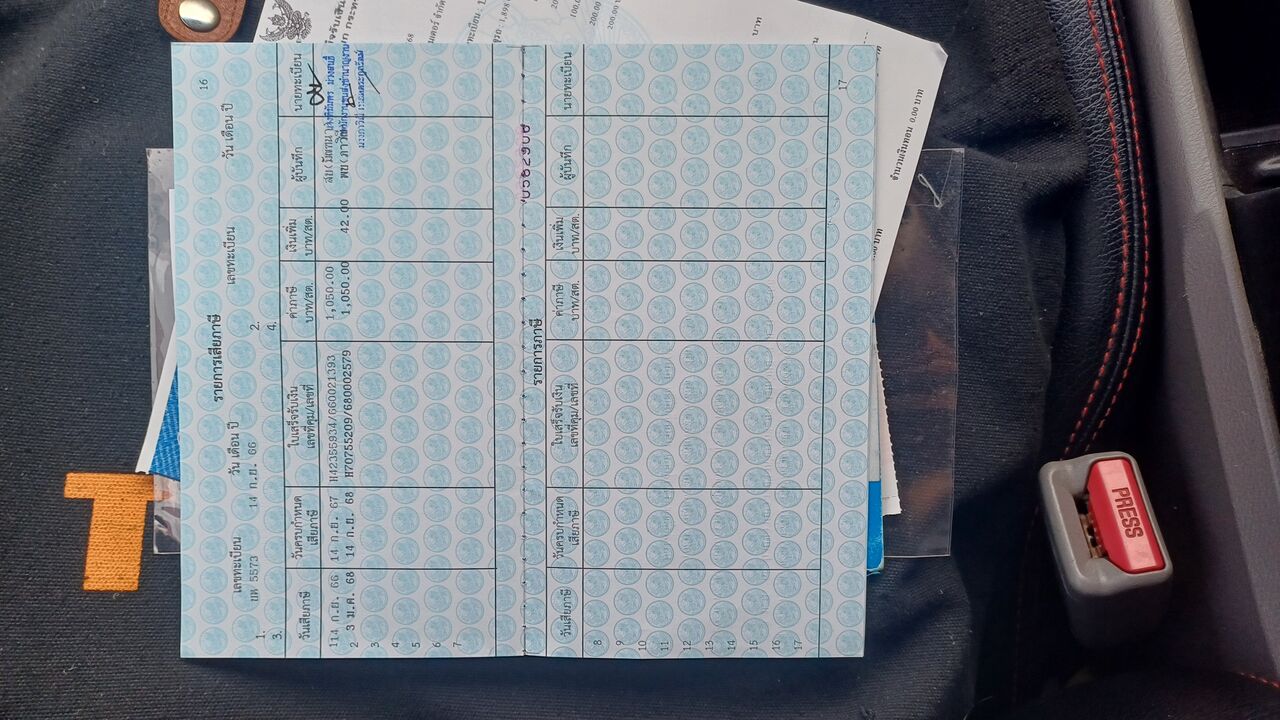 16
รายการเสียภาษี
เลขทะเบียน วัน เดือน ปี เลขทะเบียน วัน เดือน ปี
1. บห 5573 14 ก.ย. 66 2.
3. 4.
วันเสียภาษี วันครบกำหนดเสียภาษี ใบเสร็จรับเงิน เลขที่คุม/เลขที่ ค่าภาษี บาท/สต. เงินเพิ่ม บาท/สต. ผู้บันทึก นายทะเบียน
1 14 ก.ย. 66 14 ก.ย. 67 H42355934/660021393 1,050.00
2 3 ม.ค. 68 14 ก.ย. 68 H70755209/680002579 1,050.00 42.00
3
4
5
6
7
รายการภาษี
วันเสียภาษี วันครบกำหนดเสียภาษี ใบเสร็จรับเงิน เลขที่คุม/เลขที่ ค่าภาษี บาท/สต. เงินเพิ่ม บาท/สต. ผู้บันทึก นายทะเบียน
8
9
10
11
12
13
14
15
16
17
17
จำนวนเงินทอน 0.00 บาท
PRESS
T